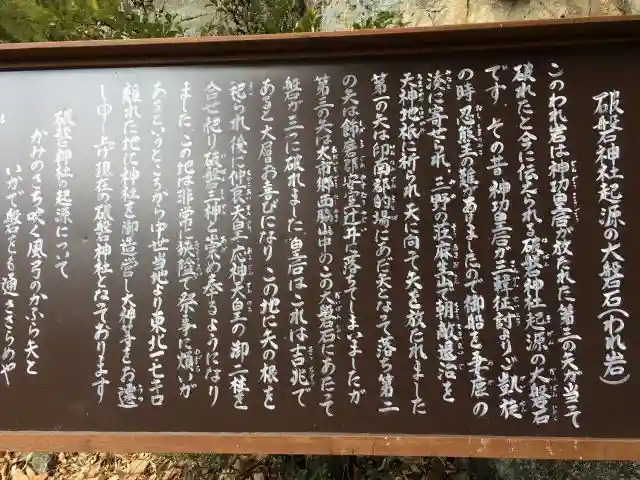 破磐神社起源の大磐石(われ岩)
このわれ岩は神功皇后が放たれた第三の矢が当って
破れたと今に伝えられる破磐神社起源の大磐石
です。その昔神功皇后が三韓征討よりご凱旋
の時 忍熊王の難がありましたので御船を妻鹿の
湊に寄せられ、三野の荘麻生山で朝敵退治を
天神地祇に祈られ天に向って矢を放たれました
第一の矢は印南郡的場にあだ矢となって落ち第二
の矢は飾磨郡安室辻井に落ちてしまいましたが
第三の矢は太市郷西脇山中のこの大磐石にあたって
磐が三に破れました 皇后はこれは吉兆で
あると大層お喜びになり この地に矢の根を
祀られ後に仲哀天皇応神天皇の御二柱を
合せ祀り破磐三神と崇め奉るようになり
ました この地は非常に狭隘で祭事に煩が
あるというところから中世当地より東北一七千口
離れた地に神社を御造営し大神等をお遷
し申し上げ現在の破磐神社となっております
破磐神社の起源について
かみのさち吹く風弓のかぶら矢と
いかで磐をも通さざらめや